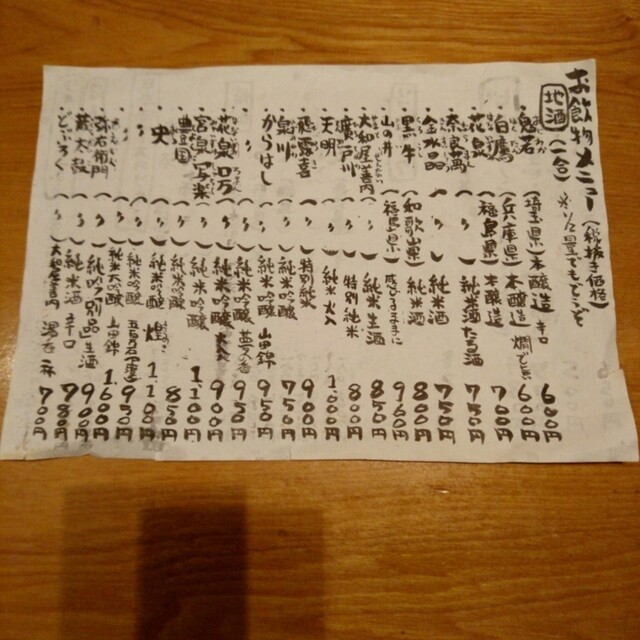 お飲物メニュー (税抜き価格)
地酒 (一合) ※1/2量でもどうぞ
・鬼若 (埼玉県) 本醸造 辛口 600円
・白鷹 (兵庫県) 本醸造 燗でどうぞ 600円
・花泉 (福島県) 本醸造 700円
・奈良萬 (〃) 純米酒 たる酒 750円
・金水晶 (〃) 純米酒 800円
・黒牛 (和歌山県) 純米酒 960円
・山の井 (福島県) 感じるままに 850円
・大和屋善内 (〃) 純米生酒 800円
・廣戸川 (〃) 特別純米
・天明 (〃) 純米 火入 1,000円
・飛露喜 (〃) 特別純米 900円
・泉川 (〃) 純米吟醸 750円
・からはし (〃) 純米吟醸 山田錦 950円
・〃 (〃) 純米吟醸 夢の香 950円
・花泉 ロ万 (〃) 純米吟醸 火入 900円
・宮泉 写楽 (〃) 純米吟醸 1,100円
・豊国 (〃) 純米吟醸 850円
・央 (〃) 純米吟醸 煌 1,100円
・〃 (〃) 純米吟醸 五百万石 950円
・〃 (〃) 純米大吟醸 山田錦 1,600円
・弥右衛門 (〃) 純吟別品生酒 900円
・蔵太鼓 (〃) 純米酒 辛口 780円
・どぶろく (〃) 大和屋善内 700円